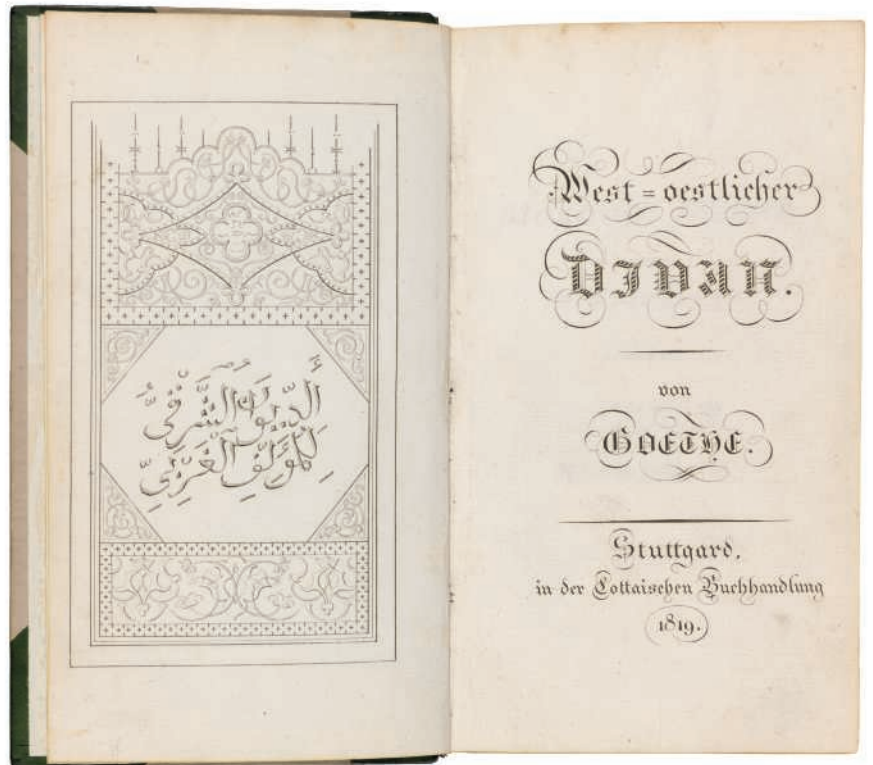 أَلدِّيوَانُ الشَّرْقِيُّ
لِلْمُؤَلِّفِ ٱلْغَرْبِيِّ
West=oestlicher
DIVAN.
von
GOETHE.
Stuttgard,
in der Cottaischen Buchhandlung
1819.